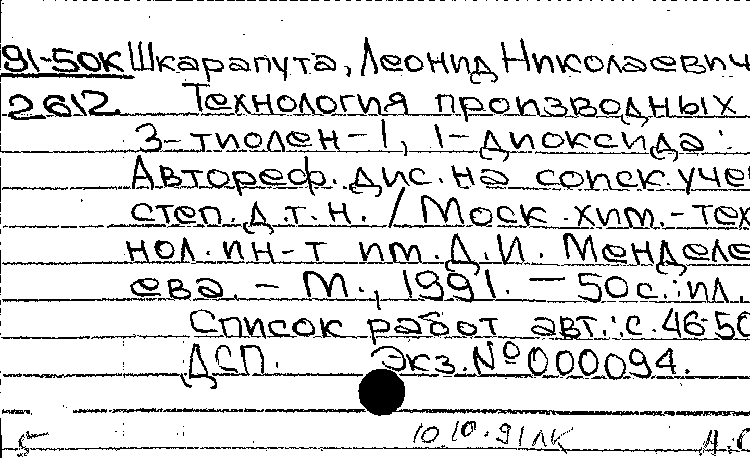 91-50К Шкарапута, Леонид Николаевич
2612 Технология производных
3-тиолен-1, 1-диоксида:
Автореф. дис. на соиск. учен
степ. д.т.н. / Моск. хим.-тех
нол. ин-т им. Д.И. Менделе
ева. – М., 1991. – 50с.: ил.
Список работ авт.: с. 46-50
ДСП. Экз.№000094.
5 10.10.91 ЛК